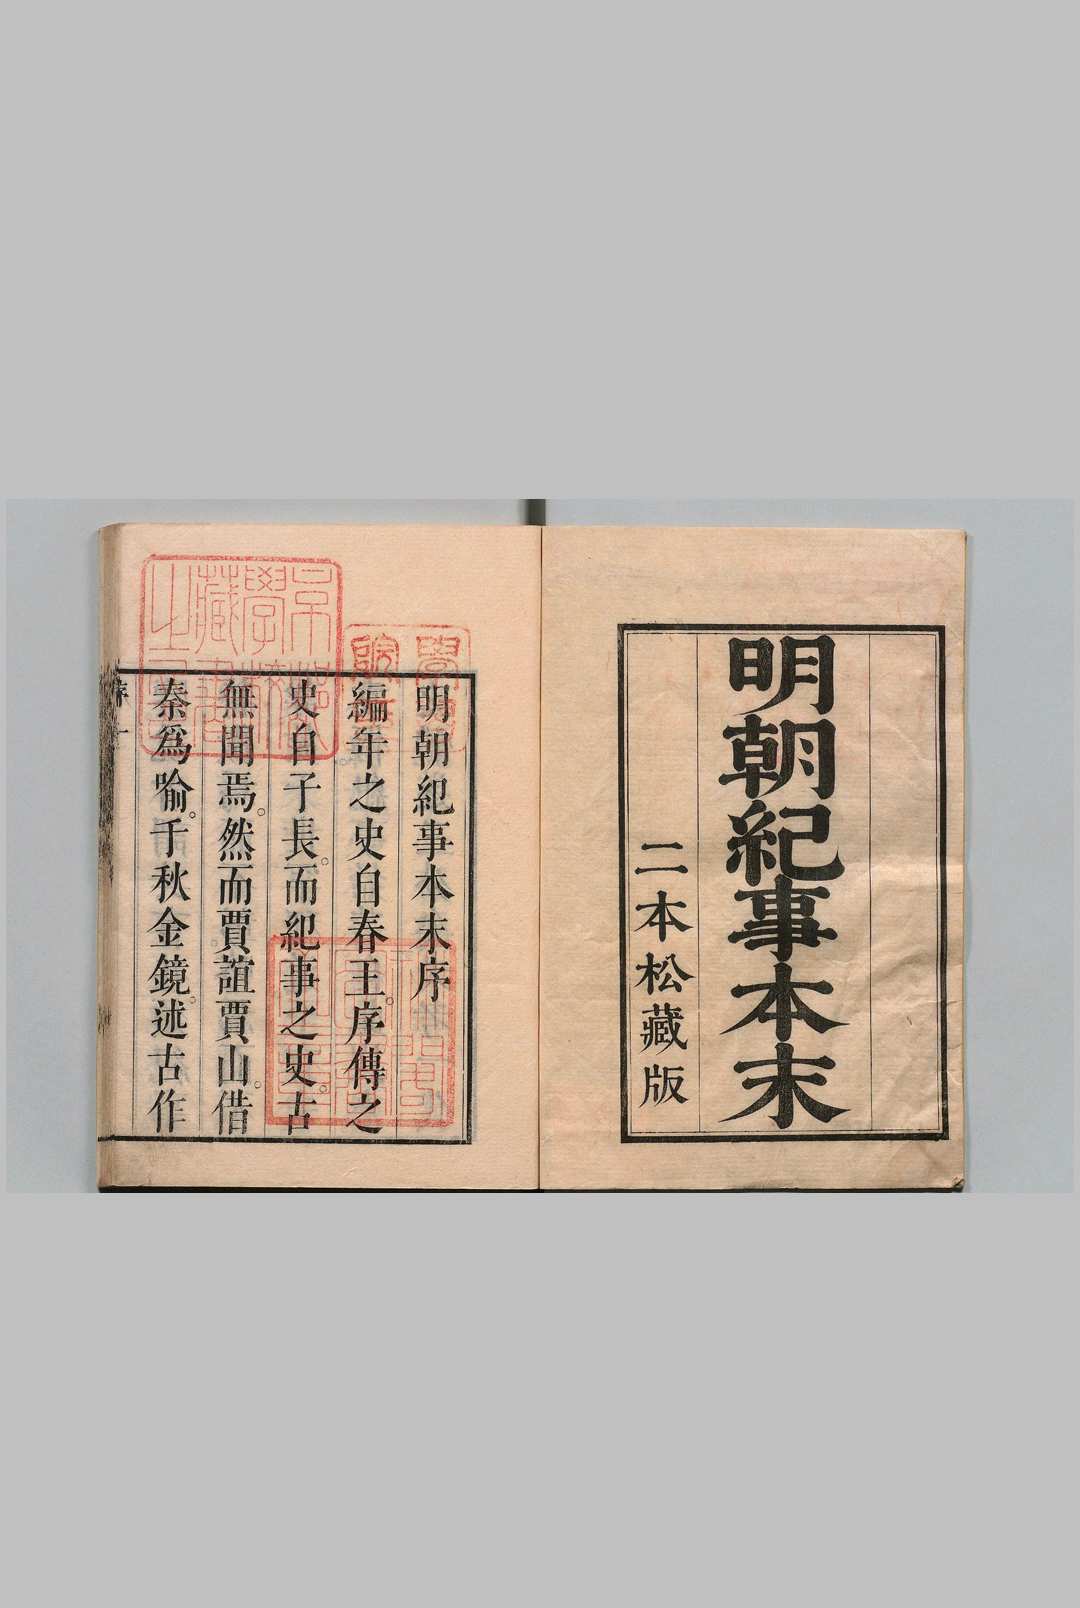 明朝紀事本末
二本松藏版
明朝紀事本末序
編年之史自春王。序傳之
史自子長。而紀事之史。古
無聞焉。然而賈誼賈山。借
秦爲喻。千秋金鏡。述古作
序